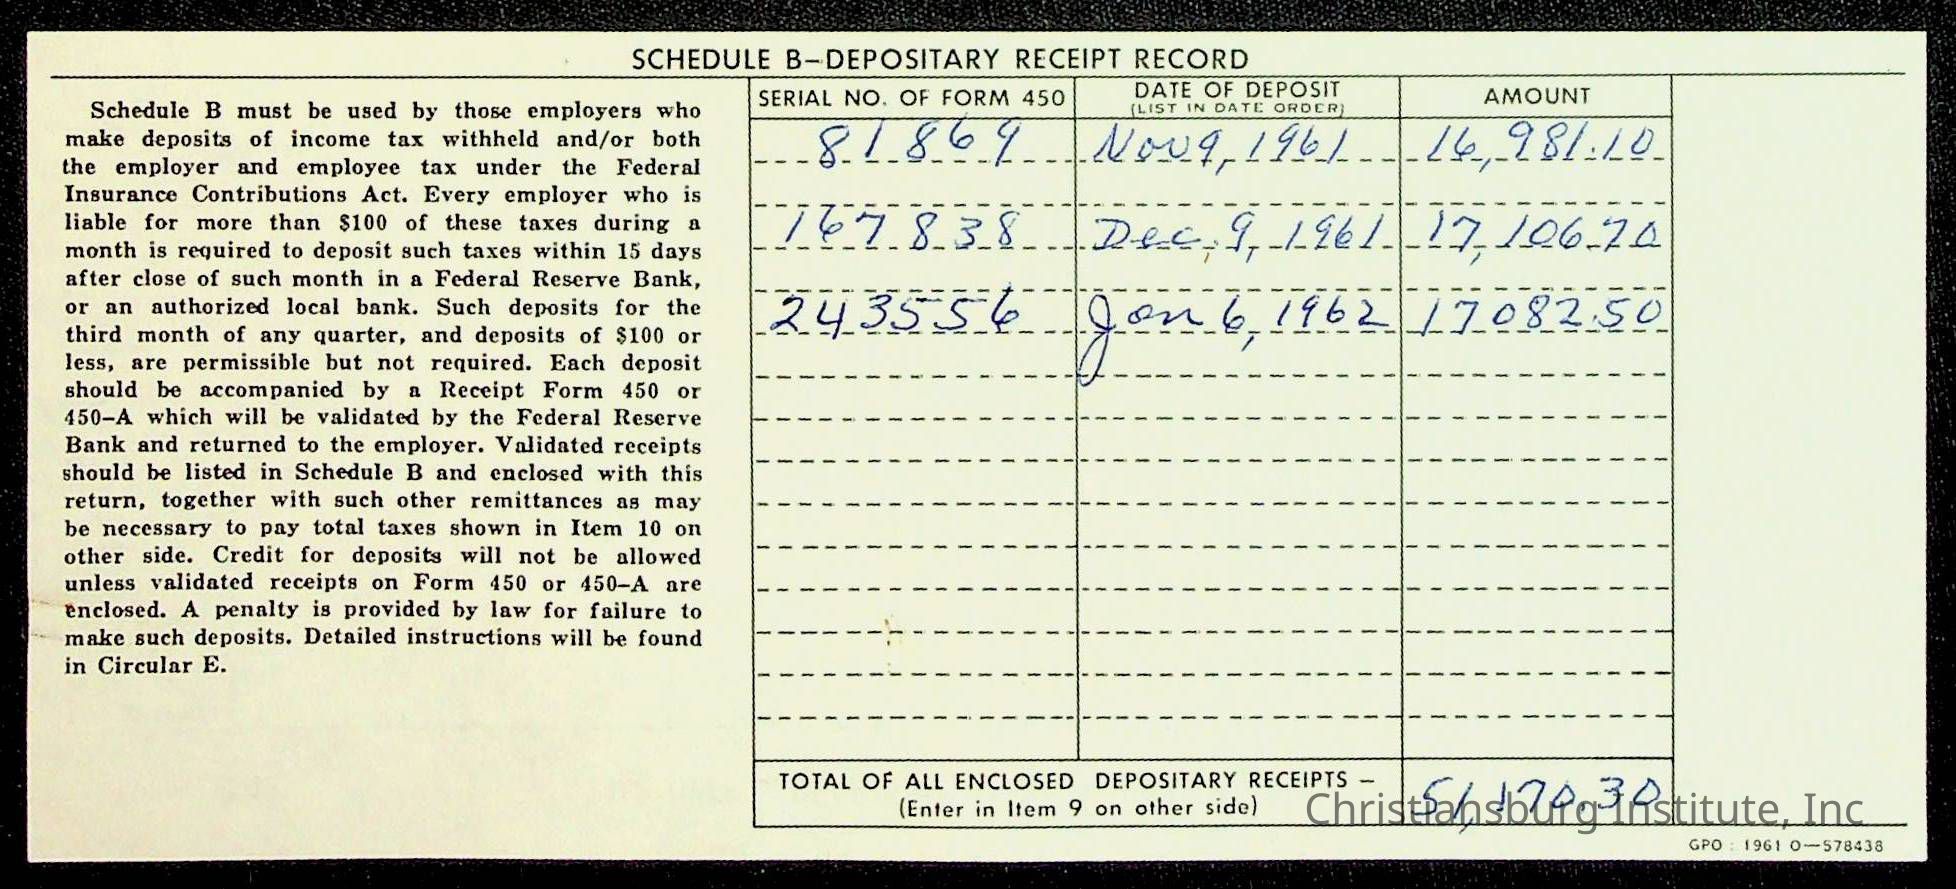 SCHEDULE B–DEPOSITARY RECEIPT RECORD
Schedule B must be used by those employers who
make deposits of income tax withheld and/or both
the employer and employee tax under the Federal
Insurance Contributions Act. Every employer who is
liable for more than $100 of these taxes during a
month is required to deposit such taxes within 15 days
after close of such month in a Federal Reserve Bank,
or an authorized local bank. Such deposits for the
third month of any quarter, and deposits of $100 or
less, are permissible but not required. Each deposit
should be accompanied by a Receipt Form 450 or
450–A which will be validated by the Federal Reserve
Bank and returned to the employer. Validated receipts
should be listed in Schedule B and enclosed with this
return, together with such other remittances as may
be necessary to pay total taxes shown in Item 10 on
other side. Credit for deposits will not be allowed
unless validated receipts on Form 450 or 450–A are
enclosed. A penalty is provided by law for failure to
make such deposits. Detailed instructions will be found
in Circular E.
SERIAL NO. OF FORM 450 DATE OF DEPOSIT AMOUNT
(LIST IN DATE ORDER)
81869 Nov 9, 1961 16,981.10
167838 Dec. 9, 1961 17,106.70
243556 Jan 6, 1962 17082.50
TOTAL OF ALL ENCLOSED DEPOSITARY RECEIPTS – 51,170.30
(Enter in Item 9 on other side)
Christiansburg Institute, Inc
GPO : 1961 O—578438